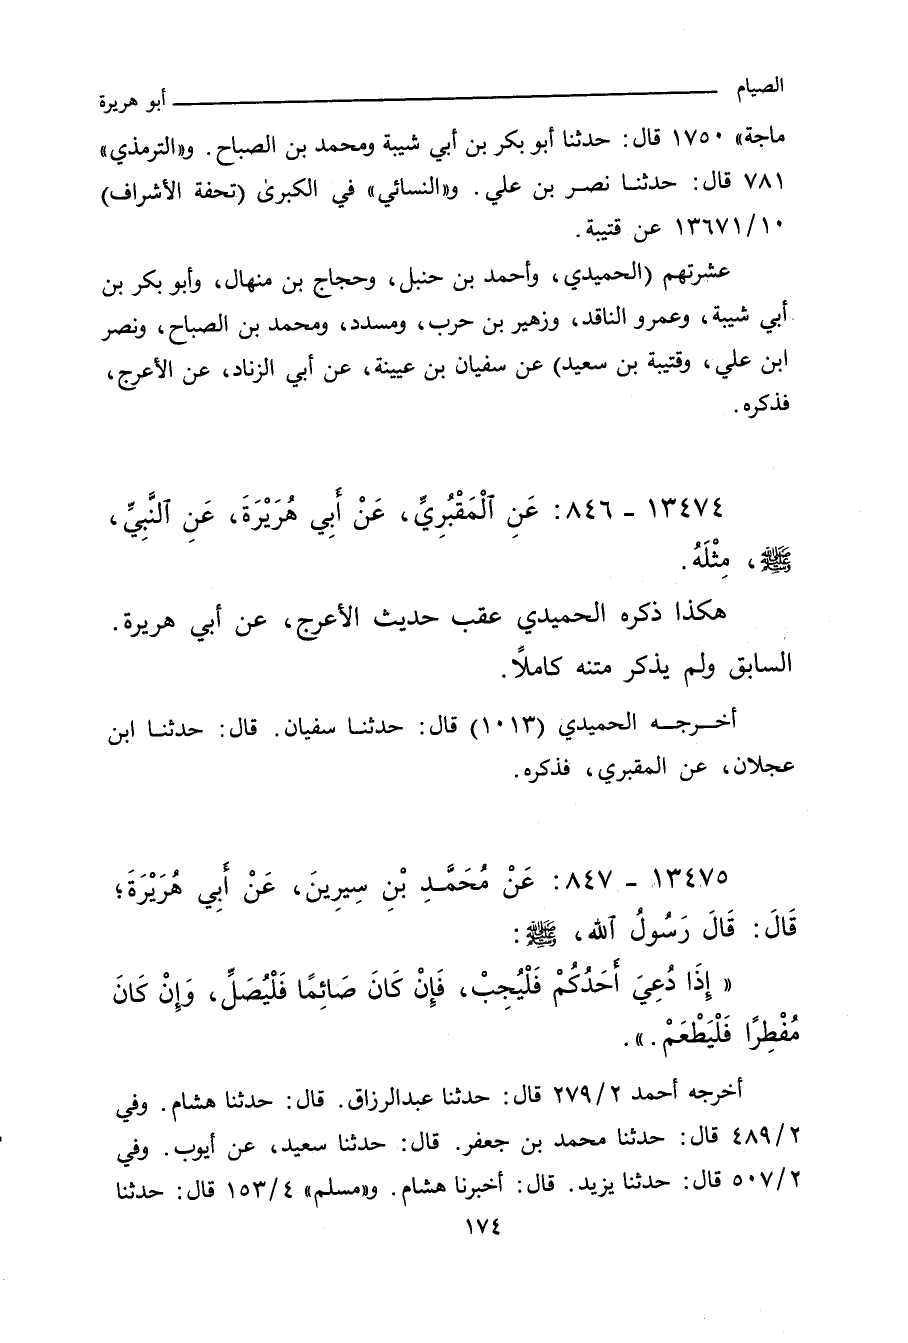 الصيام ــــــــــــ أبو هريرة
ماجة» ١٧٥٠ قال: حدثنا أبو بكر بن أبي شيبة ومحمد بن الصباح. و«الترمذي»
٧٨١ قال: حدثنا نصر بن علي. و«النسائي» في الكبرىٰ (تحفة الأشراف)
١٣٦٧١/١٠ عن قتيبة.
عشرتهم (الحميدي، وأحمد بن حنبل، وحجاج بن منهال، وأبو بكر بن
أبي شيبة، وعمرو الناقد، وزهير بن حرب، ومسدد، ومحمد بن الصباح، ونصر
ابن علي، وقتيبة بن سعيد) عن سفيان بن عيينة، عن أبي الزناد، عن الأعرج،
فذكره.
١٣٤٧٤ - ٨٤٦: عَنِ ٱلْمَقْبُرِيِّ، عَنْ أَبِي هُرَيْرَةَ، عَنِ ٱلنَّبِيِّ،
ﷺ، مِثْلَهُ.
هكذا ذكره الحميدي عقب حديث الأعرج، عن أبي هريرة.
السابق ولم يذكر متنه كاملاً.
أخرجه الحميدي (١٠١٣) قال: حدثنا سفيان. قال: حدثنا ابن
عجلان، عن المقبري، فذكره.
١٣٤٧٥ - ٨٤٧: عَنْ مُحَمَّدِ بْنِ سِيرِينَ، عَنْ أَبِي هُرَيْرَةَ؛
قَالَ: قَالَ رَسُولُ ٱلله، ﷺ:
« إِذَا دُعِيَ أَحَدُكُمْ فَلْيُجِبْ، فَإِنْ كَانَ صَائِمًا فَلْيُصَلِّ، وَإِنْ كَانَ
مُفْطِرًا فَلْيَطْعَمْ.».
أخرجه أحمد ٢٧٩/٢ قال: حدثنا عبدالرزاق. قال: حدثنا هشام. وفي
٤٨٩/٢ قال: حدثنا محمد بن جعفر. قال: حدثنا سعيد، عن أيوب. وفي
٥٠٧/٢ قال: حدثنا يزيد. قال: أخبرنا هشام. و«مسلم» ١٥٣/٤ قال: حدثنا
١٧٤